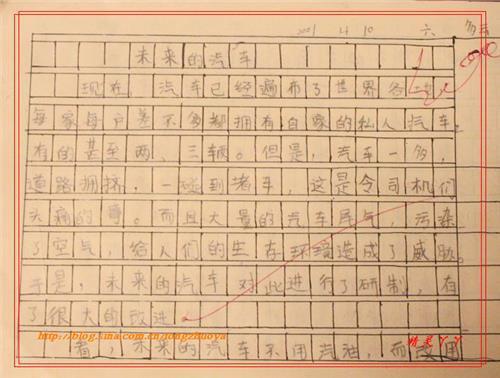 2001 4 10 六
未来的汽车
现在，汽车已经遍布了世界各
每家每户差不多都拥有自家的私人汽车。
有的甚至两，三辆。但是，汽车一多，
道路拥挤，一碰到堵车，这是令司机们
头痛的事。而且大量的汽车尾气，污染
了空气，给人们的生存环境造成了威胁。
于是，未来的汽车对此进行了研制，有
了很大的改进。
看，未来的汽车不用汽油，而改用
http://blog.sina.com.cn/dongzhuoya